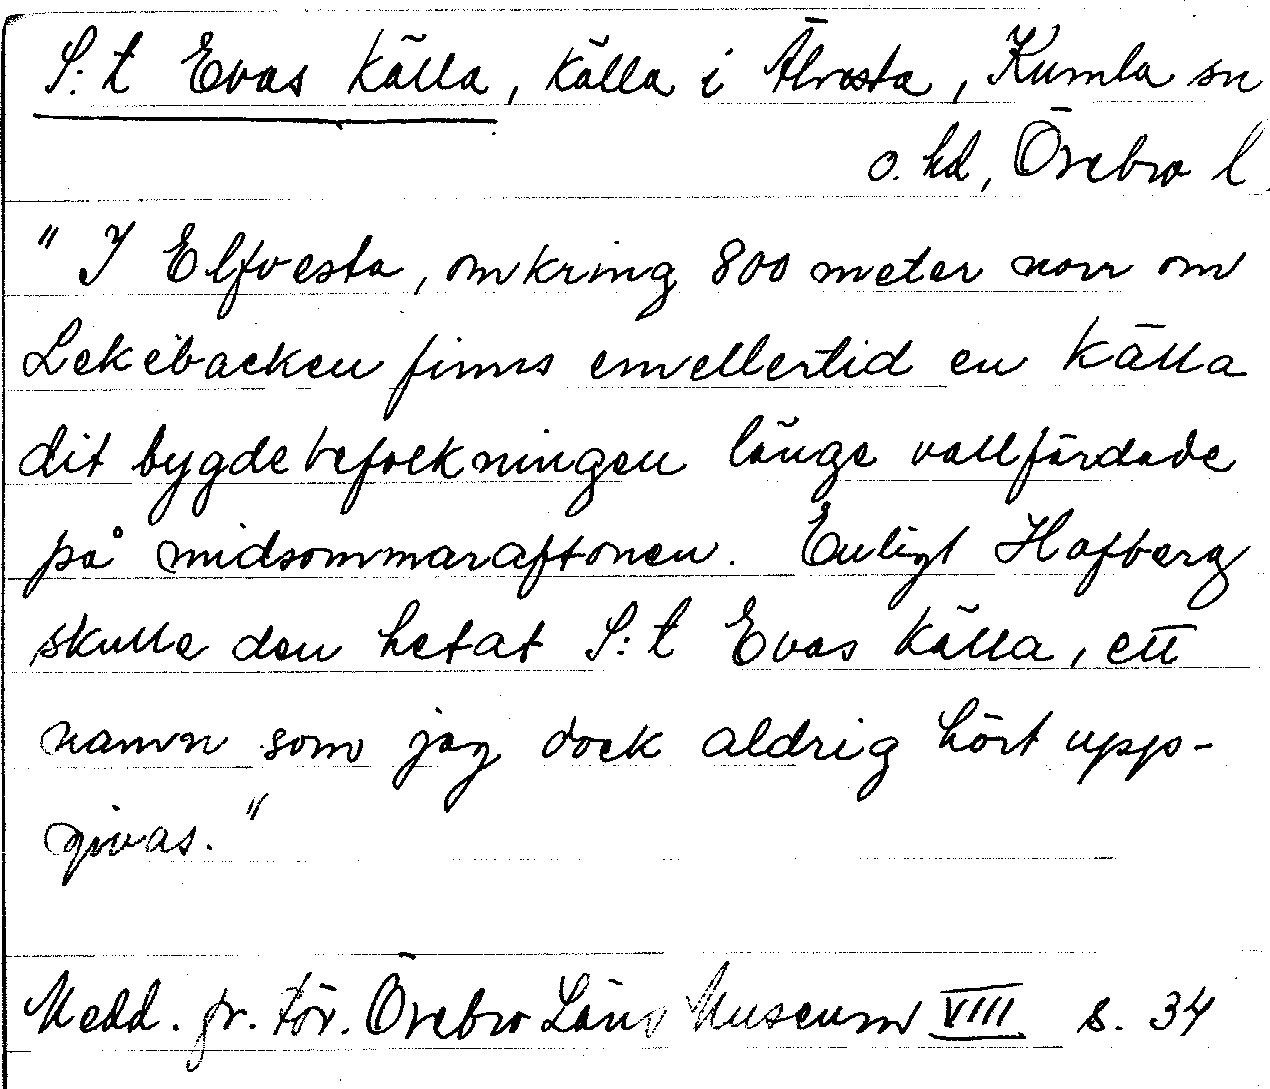 S:t Evas källa, källa i Älvesta, Kumla sn
o. hd, Örebro l.
" I Elfvesta, omkring 800 meter norr om
Lekebacken finns emellertid en källa
dit bygdebefolkningen länge vallfärdade
på midsommaraftonen. Enligt Hofberg
skulle den hetat S:t Evas källa, ett
namn som jag dock aldrig hört upp-
givas."
Medd. fr. för. Örebro Läns Museum VIII s. 34